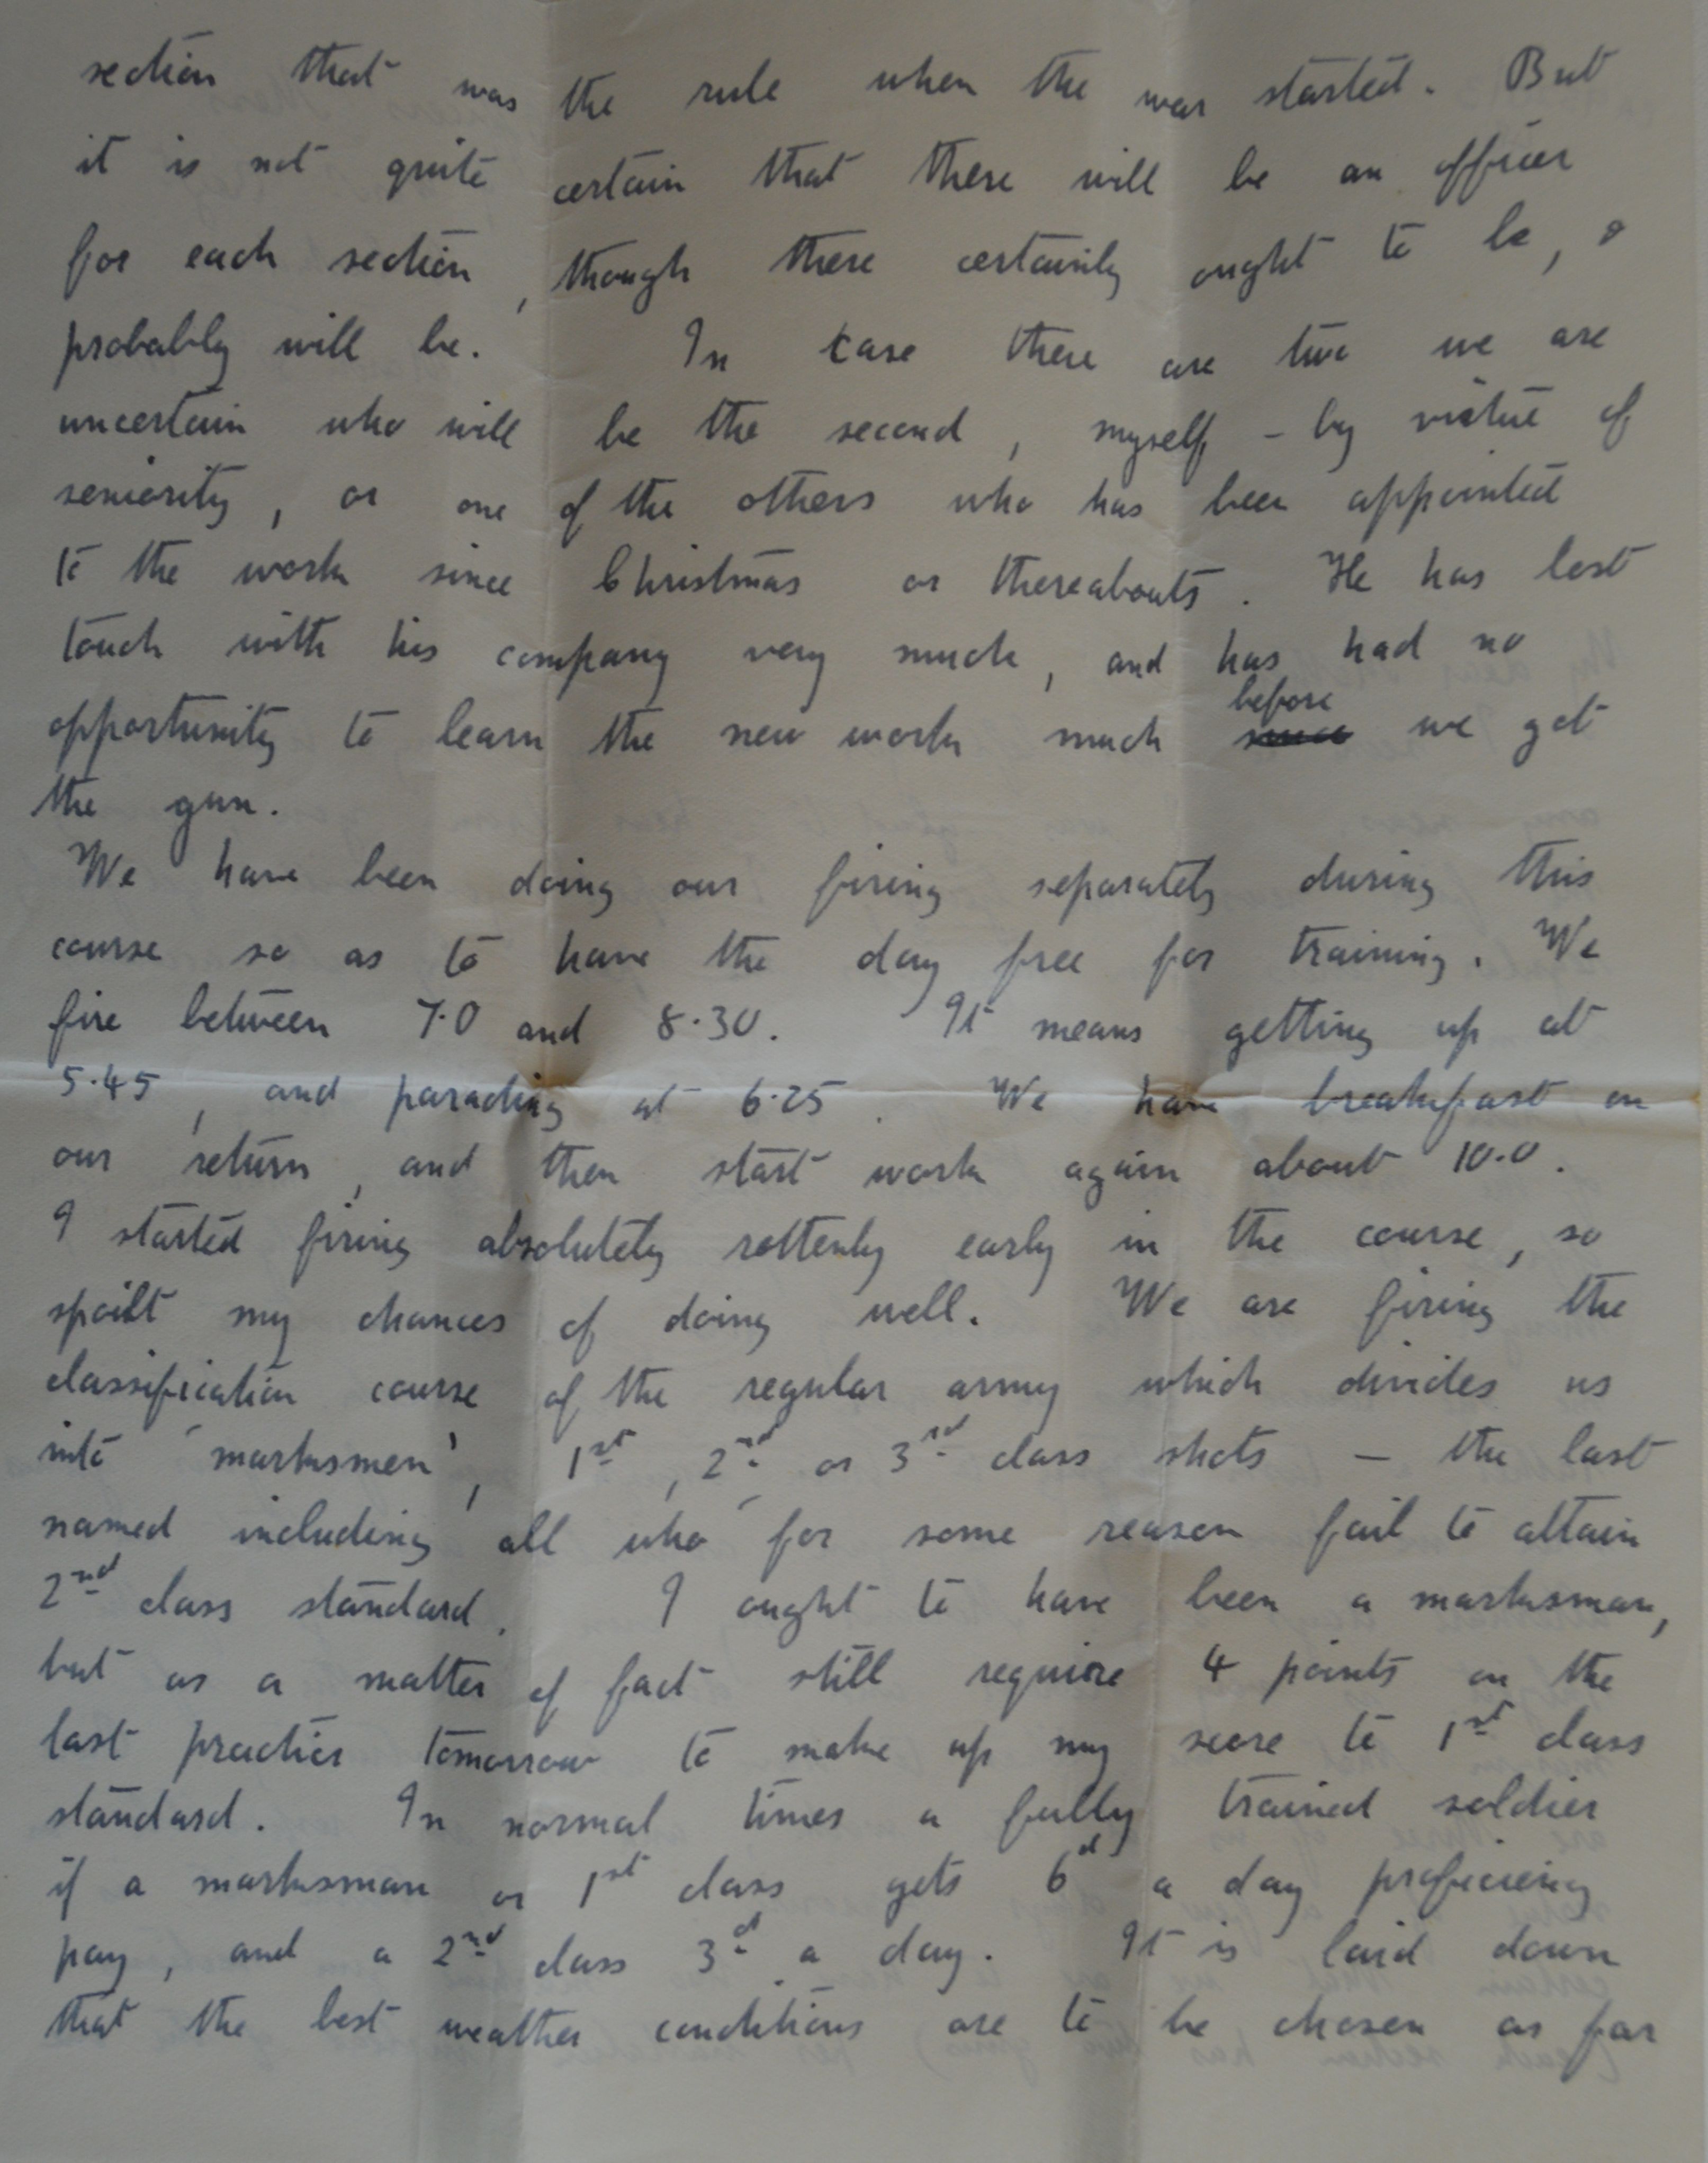 section that was the rule when the war started. But
it is not quite certain that there will be an officer
for each section, though there certainly ought to be, &
probably will be. In case there are two we are
uncertain who will be the second, myself - by virtue of
seniority, or one of the others who has been appointed
to the work since Christmas or thereabouts. He has lost
touch with his company very much, and has had no
opportunity to learn the new work much before we get
the gun.
We have been doing our firing separately during this
course so as to have the day free for training. We
fire between 7.0 and 8.30. It means getting up at
5.45, and parading at 6.25. We have breakfast on
our return, and then start work again about 10.0.
I started firing absolutely rottenly early in the course, so
spoilt my chances of doing well. We are firing the
classification course of the regular army which divides us
into 'marksmen', 1st, 2nd or 3rd class shots — the last
named including all who for some reason fail to attain
2nd class standard. I ought to have been a marksman,
but as a matter of fact still require 4 points on the
last practice tomorrow to make up my score to 1st class
standard. In normal times a fully trained soldier
if a marksman or 1st class gets 6d a day proficiency
pay, and a 2nd class 3d a day. It is laid down
that the best weather conditions are to be chosen as far